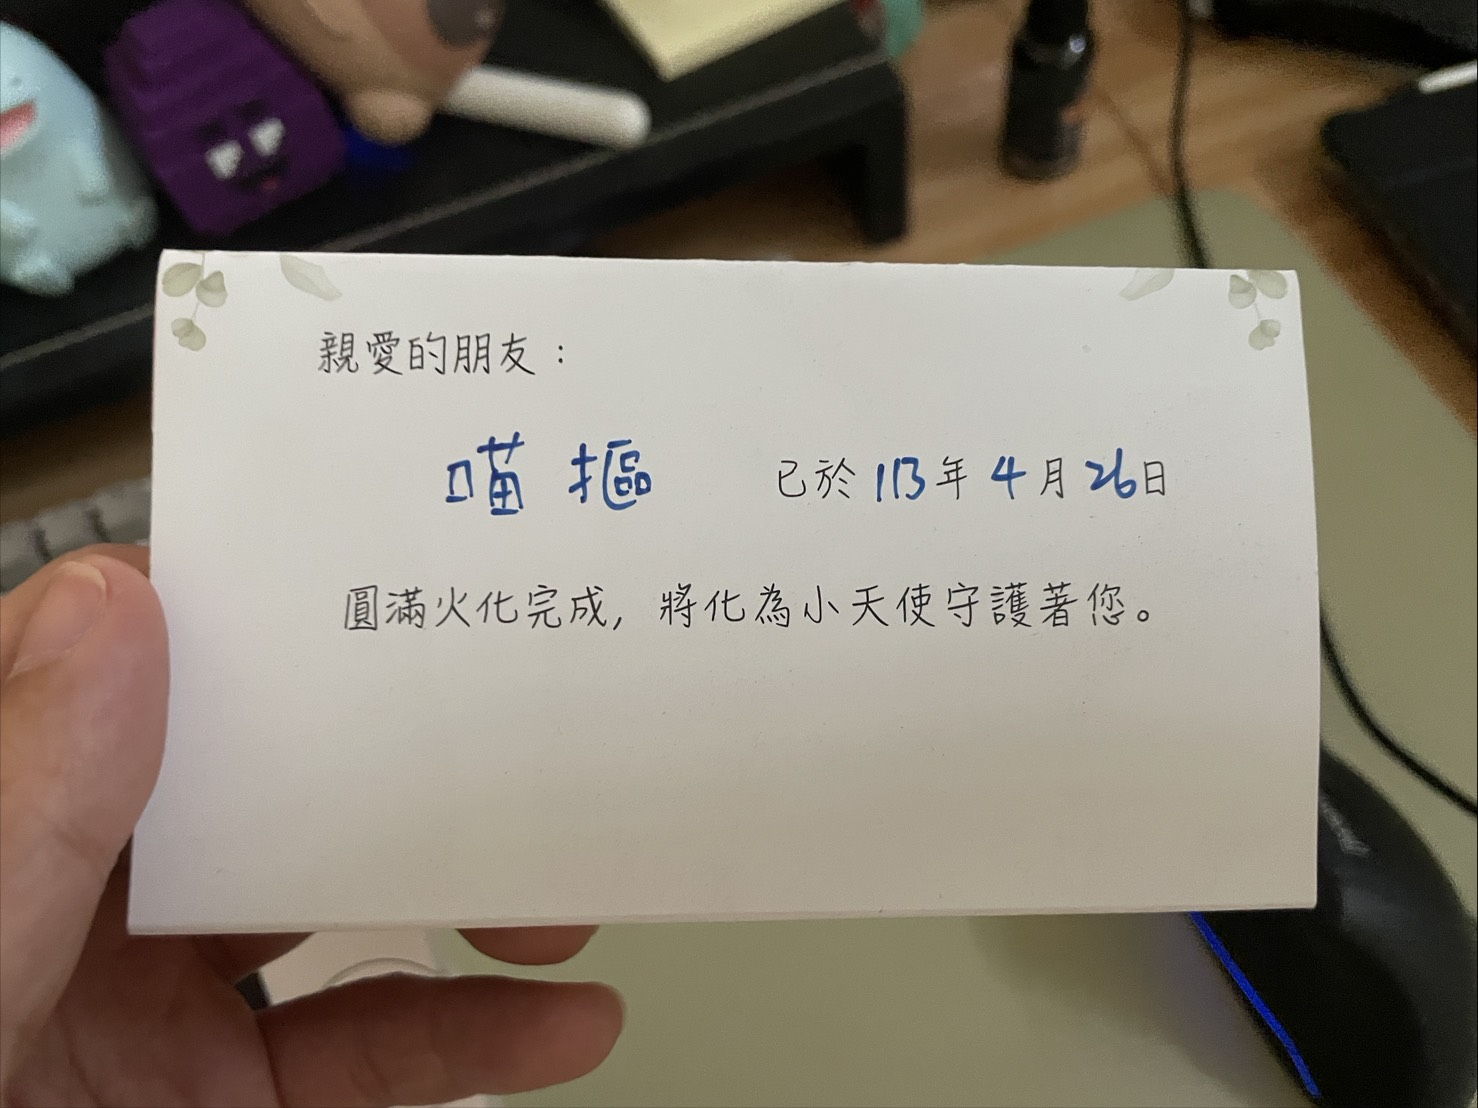 親愛的朋友：
喵摳 已於113年4月26日
圓滿火化完成, 將化為小天使守護著您。